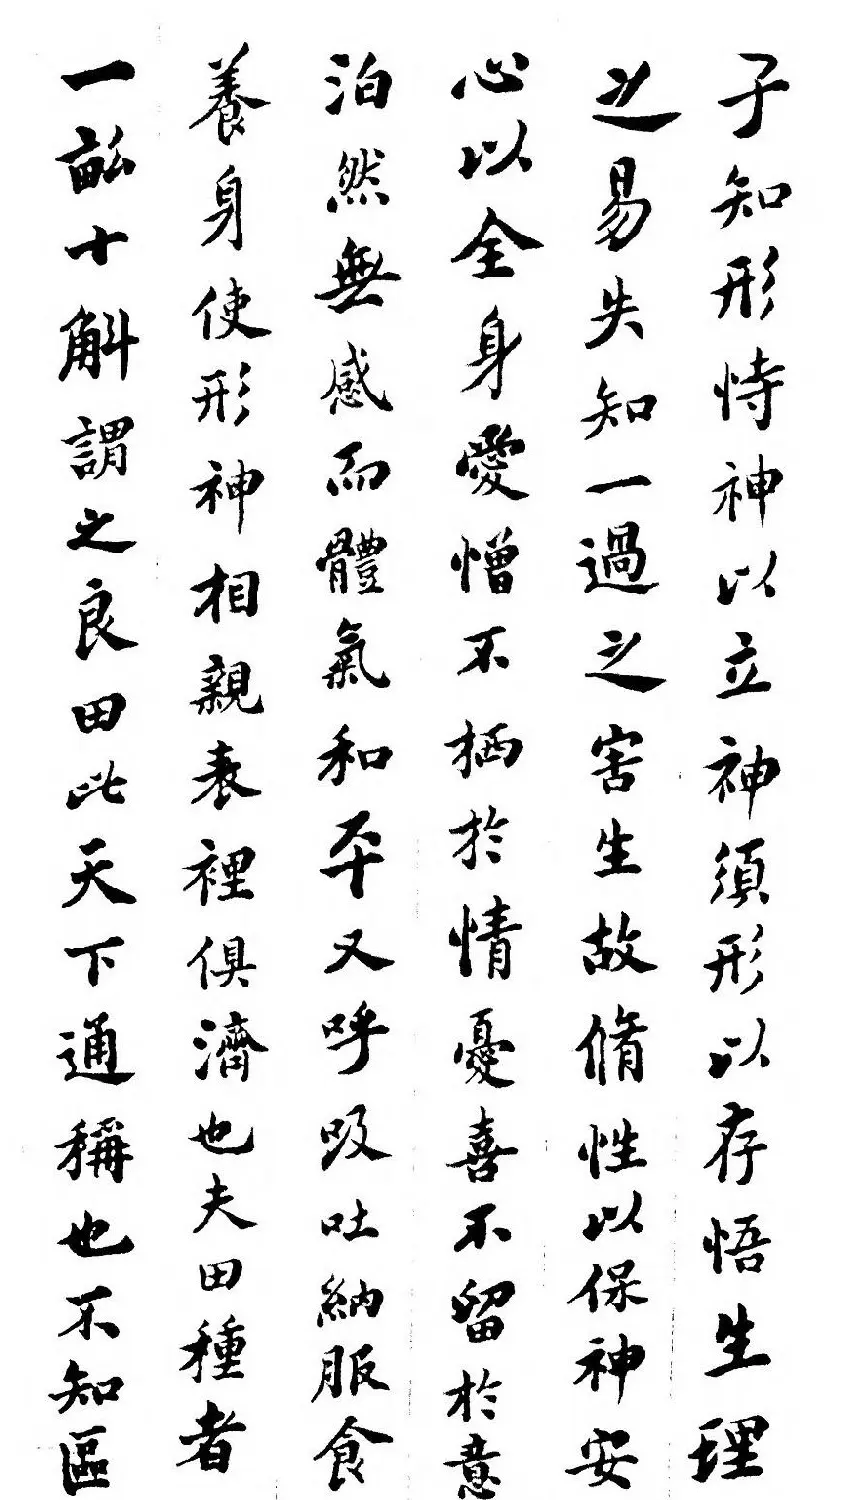 子知形恃神以立神須形以存悟生理
之易失知一過之害生故脩性以保神安
心以全身愛憎不栖於情憂喜不留於意
泊然無感而體氣和平又呼吸吐納服食
養身使形神相親表裡俱濟也夫田種者
一畝十斛謂之良田此天下通稱也不知區